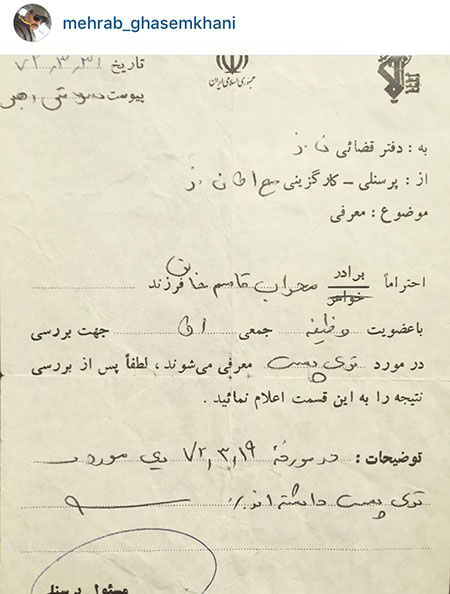 mehrab_ghasemkhani
جمهوری اسلامی ایران
تاریخ ۷۲,۳,۳۱
پیوست
به : دفتر قضائی
از : پرسنلی - کارگزینی
موضوع : معرفی
احتراماً برادر خواهر محراب قاسم خانی فرزند
باعضویت وظیفه جمعی جهت بررسی
در مورد توی پست معرفی می‌شوند ، لطفاً پس از بررسی
نتیجه را به این قسمت اعلام نمائید .
توضیحات : در مورخهٔ ۷۲,۳,۱۹ مورد
توی پست داشته اند
مسئول پرسنلی